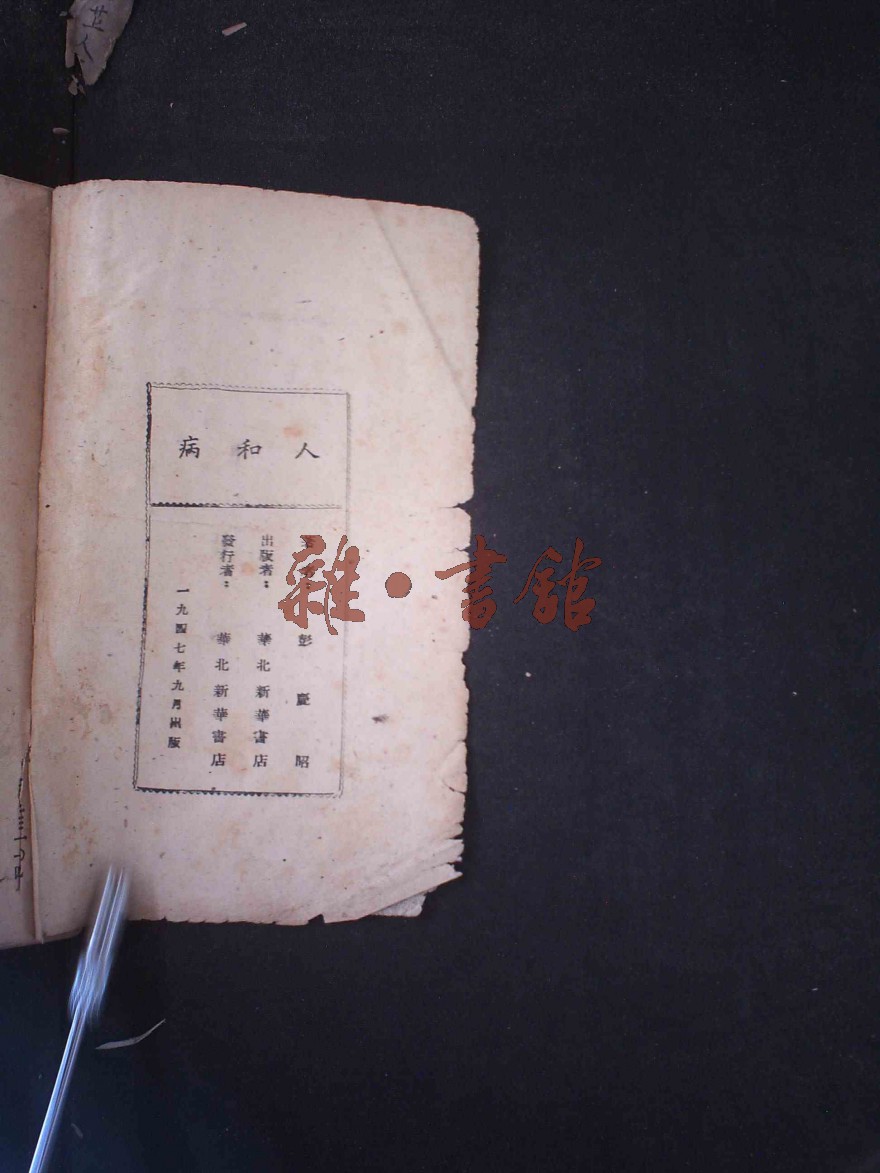 人和病
彭慶昭
出版者：華北新華書店
發行者：華北新華書店
一九四七年九月出版
雜·書館